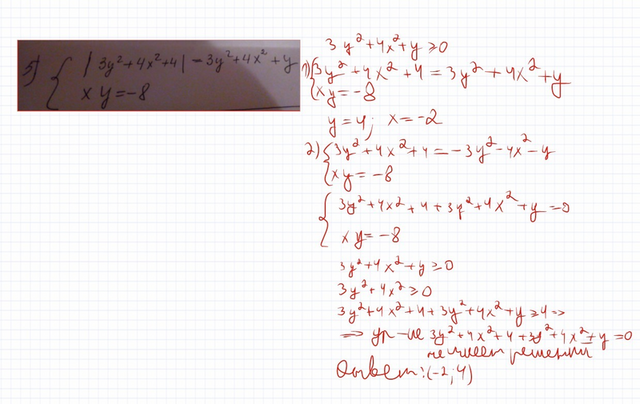 5) { | 3y²+4x²+4| = 3y²+4x²+y
x y = -8
3y²+4x²+y ≥ 0
1) { 3y²+4x²+4 = 3y²+4x²+y
xy = -8
y = 4; x = -2
2) { 3y²+4x²+4 = -3y²-4x²-y
xy = -8
{ 3y²+4x²+4+3y²+4x²+y = 0
xy = -8
3y²+4x²+y ≥ 0
3y²+4x² ≥ 0
3y²+4x²+4+3y²+4x²+y ≥ 4 =>
=> ур-ие 3y²+4x²+4+3y²+4x²+y = 0
не имеет решений
Ответ: (-2; 4)